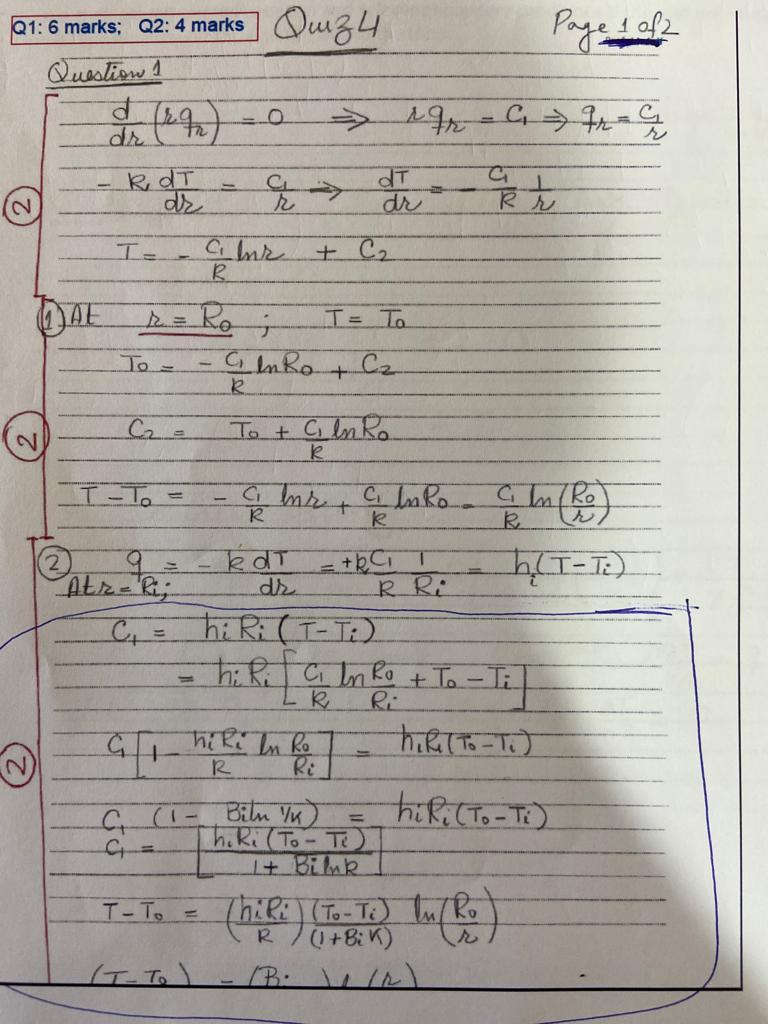 Q1: 6 marks; Q2: 4 marks Quiz 4 Page 1 of 2
Question 1
d/dr (r qr) = 0 ⇒ r qr = C1 ⇒ qr = C1/r
② - k dT/dr = C1/r ⇒ dT/dr = - C1/k 1/r
T = - C1/k ln r + C2
① At r = Ro ; T = To
To = - C1/k ln Ro + C2
② C2 = To + C1/k ln Ro
T - To = - C1/k ln r + C1/k ln Ro = C1/k ln (Ro/r)
② q = - k dT/dr = + k C1/k 1/Ri = hi (T - Ti)
At r = Ri;
C1 = hi Ri (T - Ti)
= hi Ri [C1/k ln Ro/Ri + To - Ti]
② C1 [1 - hi Ri/k ln Ro/Ri] = hi Ri (To - Ti)
C1 (1 - Bi ln 1/K) = hi Ri (To - Ti)
C1 = [hi Ri (To - Ti)/1 + Bi ln k]
T - To = (hi Ri/k) (To - Ti)/(1 + Bi K) ln (Ro/r)